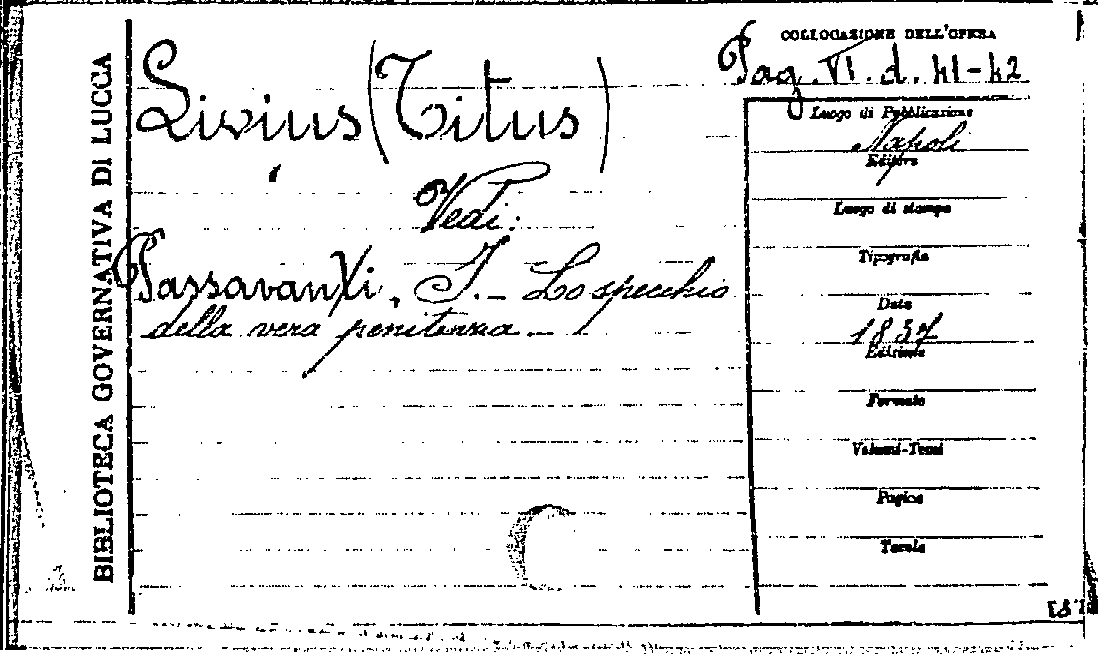 BIBLIOTECA GOVERNATIVA DI LUCCA
Livius (Titus)
Vedi:
Passavanti, J. - Lo specchio
della vera penitenza -
COLLOCAZIONE DELL'OPERA
Pag. VI. d. 41-42
Luogo di Pubblicazione
Napoli
Editore
Luogo di stampa
Tipografia
Data
1837
Edizione
Formato
Volumi-Tomi
Pagine
Tavole